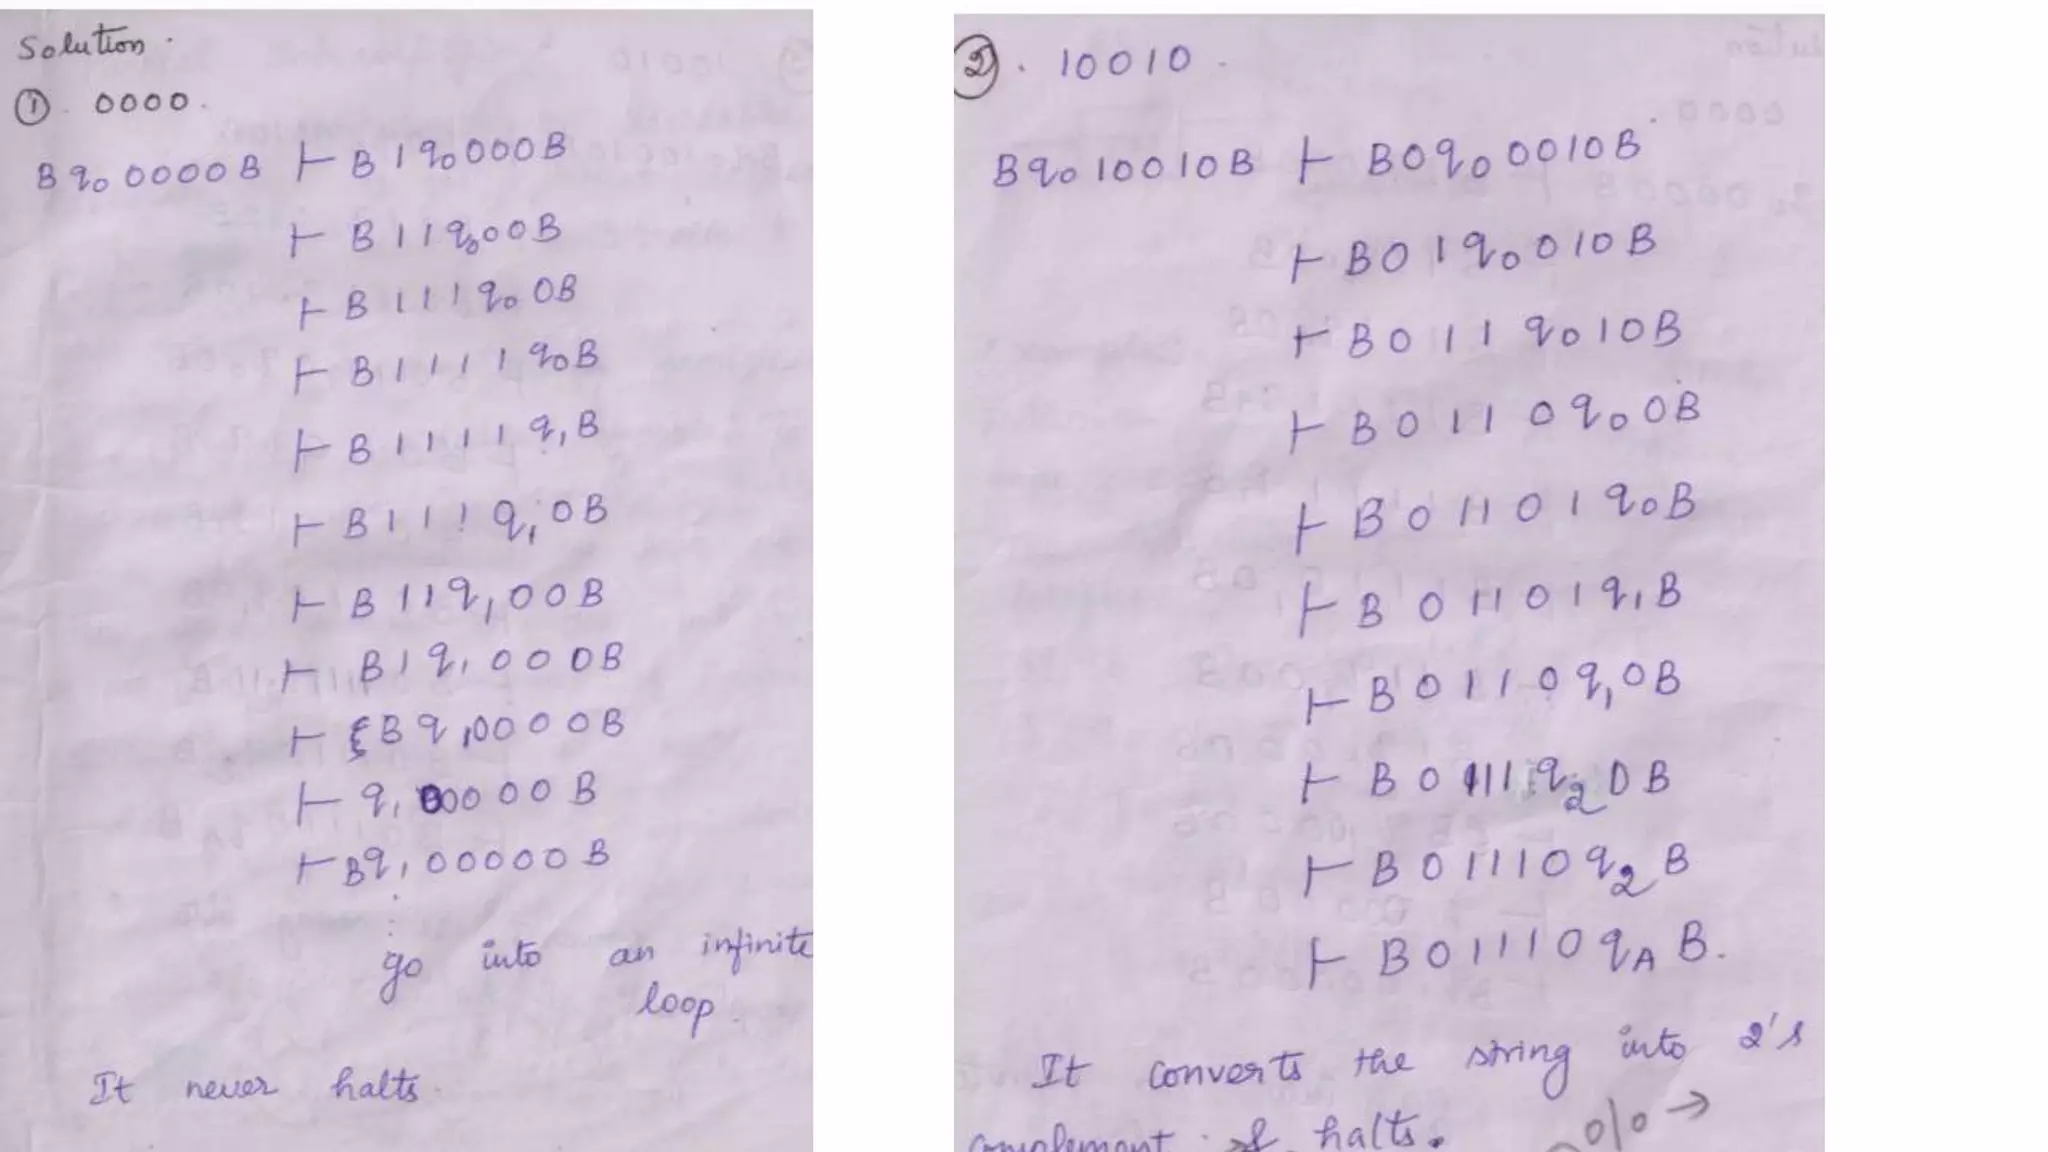 Solution.
① 0000.
B q₀ 0000 B ⊢ B 1 q₀ 000 B
⊢ B 11 q₀ 00 B
⊢ B 111 q₀ 0B
⊢ B 1111 q₀ B
⊢ B 1111 q₁ B
⊢ B 111 q₁ 0B
⊢ B 11 q₁ 00B
⊢ B 1 q₁ 000B
⊢ B q₁ 0000B
⊢ q₁ 00000B
⊢ B q₁ 00000B
go into an infinite
loop.
It never halts.
②. 10010.
B q₀ 10010 B ⊢ B0 q₀ 0010B
⊢ B01 q₀ 010B
⊢ B011 q₀ 10B
⊢ B0110 q₀ 0B
⊢ B01101 q₀ B
⊢ B01101 q₁ B
⊢ B0110 q₁ 0B
⊢ B0111 q₂ 0B
⊢ B01110 q₂ B
⊢ B01110 q_A B.
It converts the string into 2's
complement & halts.